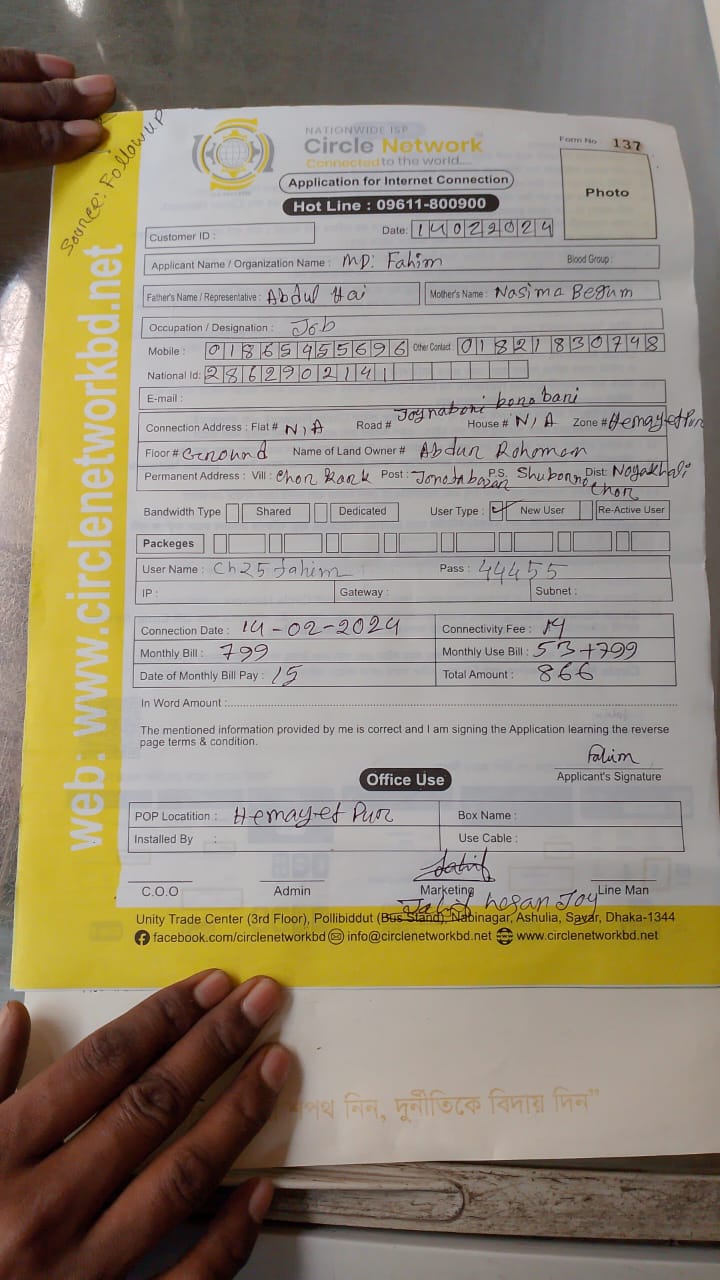 Source: Followup
NATIONWIDE ISP
Circle Network
Connected to the world....
Form No 137
Application for Internet Connection
Photo
Hot Line : 09611-800900
Customer ID :
Date: 14022024
Applicant Name / Organization Name : MD: Fahim Blood Group :
Father's Name / Representative : Abdul Hai Mother's Name : Nasima Begum
Occupation / Designation : Job
Mobile : 01865455696 Other Contact 01821830748
National Id: 2862902141
E-mail :
Connection Address : Flat # N/A Road # Joynaboni bonobani House # N/A Zone # Hemayetpur
Floor # Ground Name of Land Owner # Abdur Rohoman
Permanent Address : Vill : Post : P.S. Dist: Noyakhali
Bandwidth Type Shared Dedicated User Type : ✓ New User Re-Active User
Packeges
User Name : Ch25fahim Pass : 44455
IP : Gateway : Subnet :
Connection Date : 14-02-2024 Connectivity Fee : 14
Monthly Bill : 799 Monthly Use Bill : 53+799
Date of Monthly Bill Pay : 15 Total Amount : 866
In Word Amount :
The mentioned information provided by me is correct and I am signing the Application learning the reverse
page terms & condition.
Fahim
Applicant's Signature
Office Use
POP Locatition : Hemayet Pur Box Name :
Installed By : Use Cable :
C.O.O Admin Marketing Line Man
hasan Joy
Unity Trade Center (3rd Floor), Pollibiddut (Bus Stand), Nabinagar, Ashulia, Savar, Dhaka-1344
facebook.com/circlenetworkbd info@circlenetworkbd.net www.circlenetworkbd.net
web: www.circlenetworkbd.net
শপথ নিন, দুর্নীতিকে বিদায় দিন”